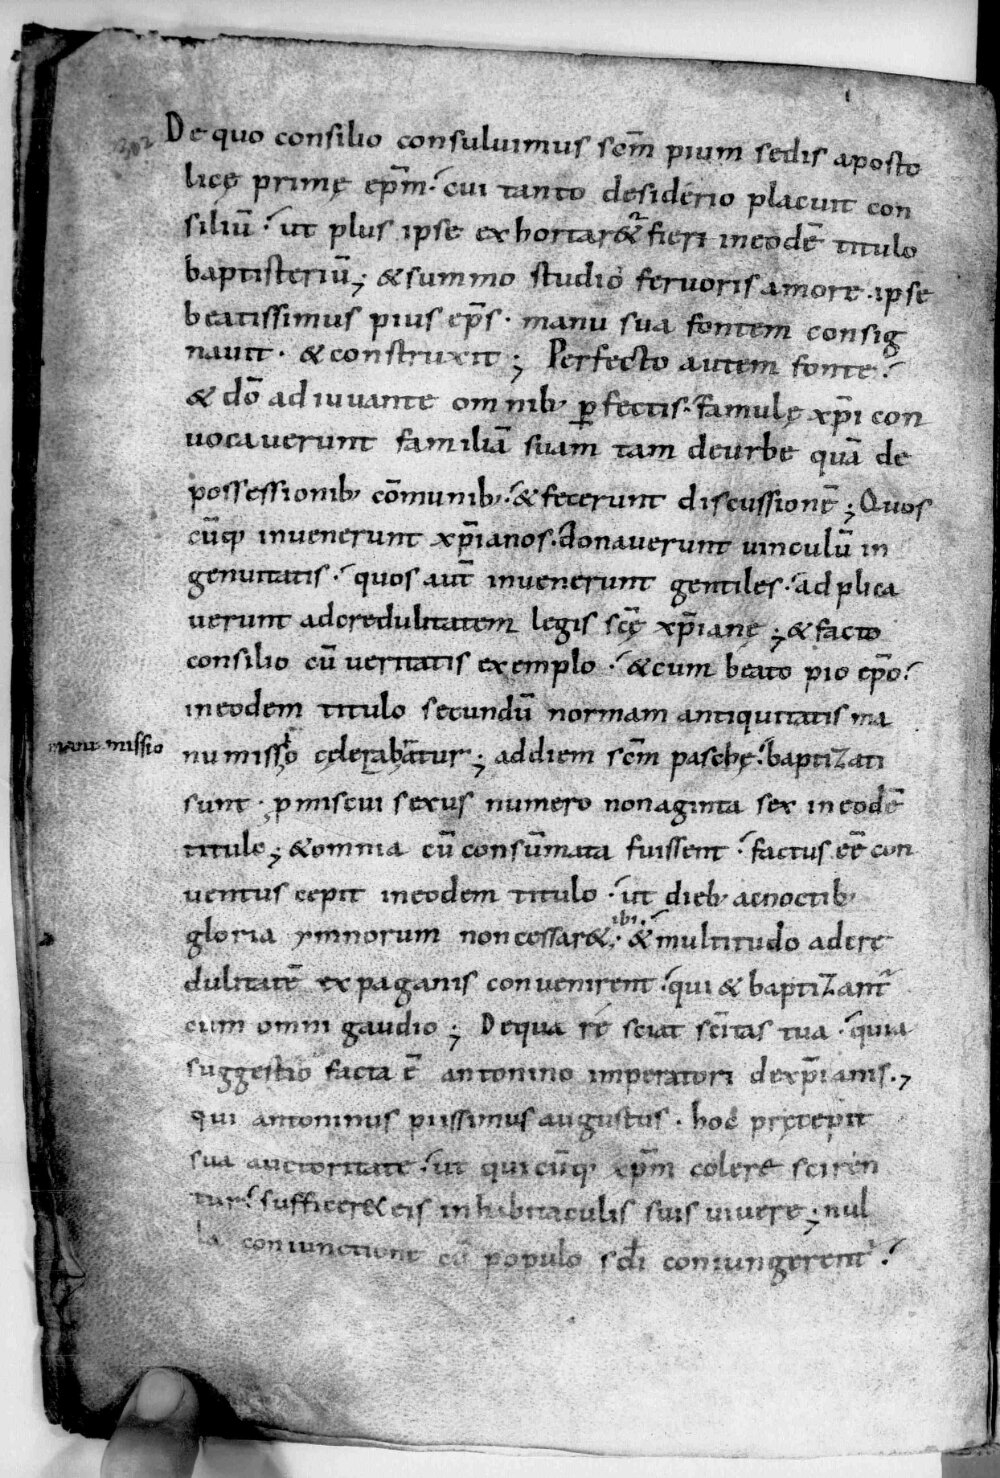 302
De quo consilio consuluimus scm̄ pium sedis aposto
licę primę ep̄m. cui tanto desiderio placuit con
siliū. ut plus ipse exhortar&ur fieri ineodē titulo
baptisteriū; &summo studio feruoris amore. ipse
beatissimus pius ep̄s. manu sua fontem consig
nauit. & construxit; Perfecto autem fonte.
& dō adiuuante omnib; ꝑfectis. famulę xp̄i con
uocauerunt familiā suam tam deurbe quā de
possessionib; cōmunib;. &fecerunt discussionē; Quos
cūq; inuenerunt xp̄ianos. donauerunt uinculū in
genuitatis. quos aut̄ inuenerunt gentiles. adplica
uerunt adcredulitatem legis scę̄ xp̄ianę; &facto
consilio cū ueritatis exemplo. &cum beato pio ep̄o.
ineodem titulo secundū normam antiquitatis ma
manumissio
numissio celerabātur; addiem scm̄ paschę. baptizati
sunt. ꝓmiscui sexus numero nonaginta sex ineodē
titulo; &omnia cū consūmata fuissent. factus eē con
uentus cepit ineodem titulo. ut dieb; acnoctib;
ibi.
gloria ymnorum noncessar&. & multitudo adcre
dulitatē expaganis conuenirent. qui & baptizant̄
cum omni gaudio; Dequa re sciat sc̄itas tua. quia
suggestio facta ē antonino imperatori dexp̄ianis.,
qui antoninus piissimus augustus. hoc pręcepit
sua auctoritate. ut quicūq; xp̄m colere sciren
tur. sufficer& eis inhabitaculis suis uiuere; nul
la coniunctione cū populo scđi coniungerent̄.